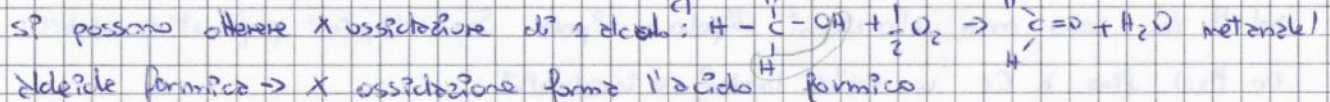 si possono ottenere x ossidazione di 1 alcol: H - C - OH + 1/2 O₂ → C=O + H₂O metanale/
H H
aldeide formica → x ossidazione forma l'acido formico